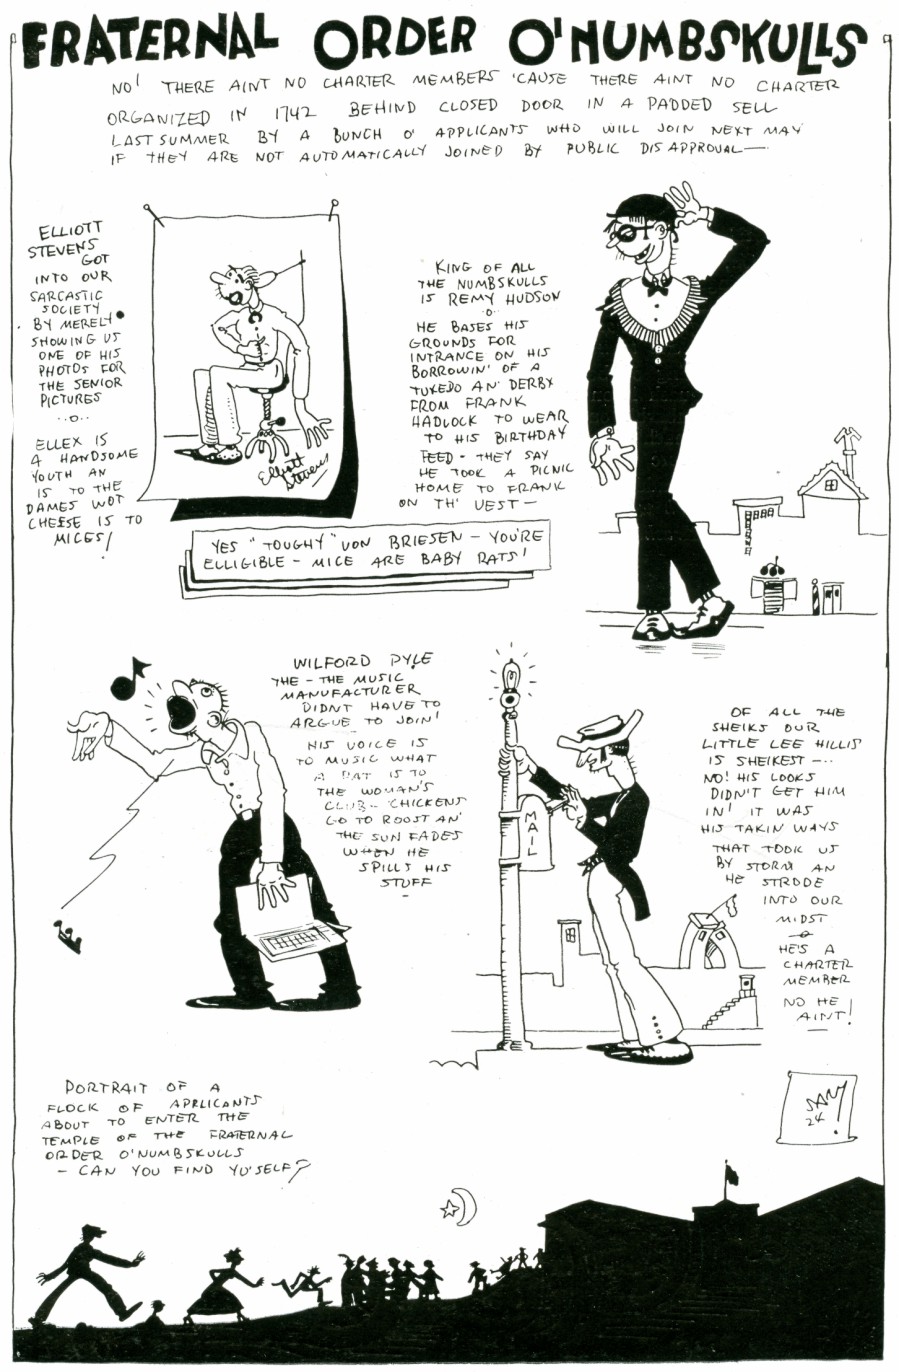 FRATERNAL ORDER O'NUMBSKULLS
NO! THERE AINT NO CHARTER MEMBERS 'CAUSE THERE AINT NO CHARTER
ORGANIZED IN 1742 BEHIND CLOSED DOOR IN A PADDED SELL
LAST SUMMER BY A BUNCH O' APPLICANTS WHO WILL JOIN NEXT MAY
IF THEY ARE NOT AUTOMATICALLY JOINED BY PUBLIC DISAPPROVAL—
ELLIOTT
STEVENS
GOT
INTO OUR
SARCASTIC
SOCIETY
BY MERELY
SHOWING US
ONE OF HIS
PHOTOS FOR
THE SENIOR
PICTURES
..O..
ELLEX IS
A HANDSOME
YOUTH AN
IS TO THE
DAMES WOT
CHEESE IS TO
MICES!
Elliott
Stevens
YES "TOUGHY" VON BRIESEN – YOU'RE
ELLIGIBLE – MICE ARE BABY RATS!
KING OF ALL
THE NUMBSKULLS
IS REMY HUDSON
-O-
HE BASES HIS
GROUNDS FOR
INTRANCE ON HIS
BORROWIN' OF A
TUXEDO AN' DERBY
FROM FRANK
HADLOCK TO WEAR
TO HIS BIRTHDAY
FEED – THEY SAY
HE TOOK A PICNIC
HOME TO FRANK
ON TH' VEST –
WILFORD PYLE
THE – THE MUSIC
MANUFACTURER
DIDNT HAVE TO
ARGUE TO JOIN!
HIS VOICE IS
TO MUSIC WHAT
A RAT IS TO
THE WOMAN'S
CLUB – CHICKENS
GO TO ROOST AN'
THE SUN FADES
WHEN HE
SPILLS HIS
STUFF
–
MAIL
OF ALL THE
SHEIKS OUR
LITTLE LEE HILLIS
IS SHEIKEST –..
NO! HIS LOOKS
DIDN'T GET HIM
IN! IT WAS
HIS TAKIN WAYS
THAT TOOK US
BY STORM AN
HE STRODE
INTO OUR
MIDST
-O-
HE'S A
CHARTER
MEMBER
NO HE
AINT!
PORTRAIT OF A
FLOCK OF APPLICANTS
ABOUT TO ENTER THE
TEMPLE OF THE FRATERNAL
ORDER O'NUMBSKULLS
– CAN YOU FIND YO'SELF?
24